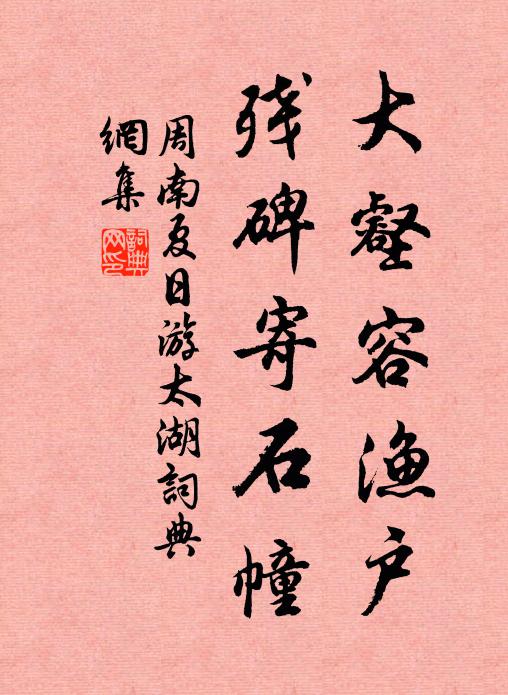 大壑容渔户
残碑寄石幢
周南夏日游太湖詞典
網集
詞典
网印